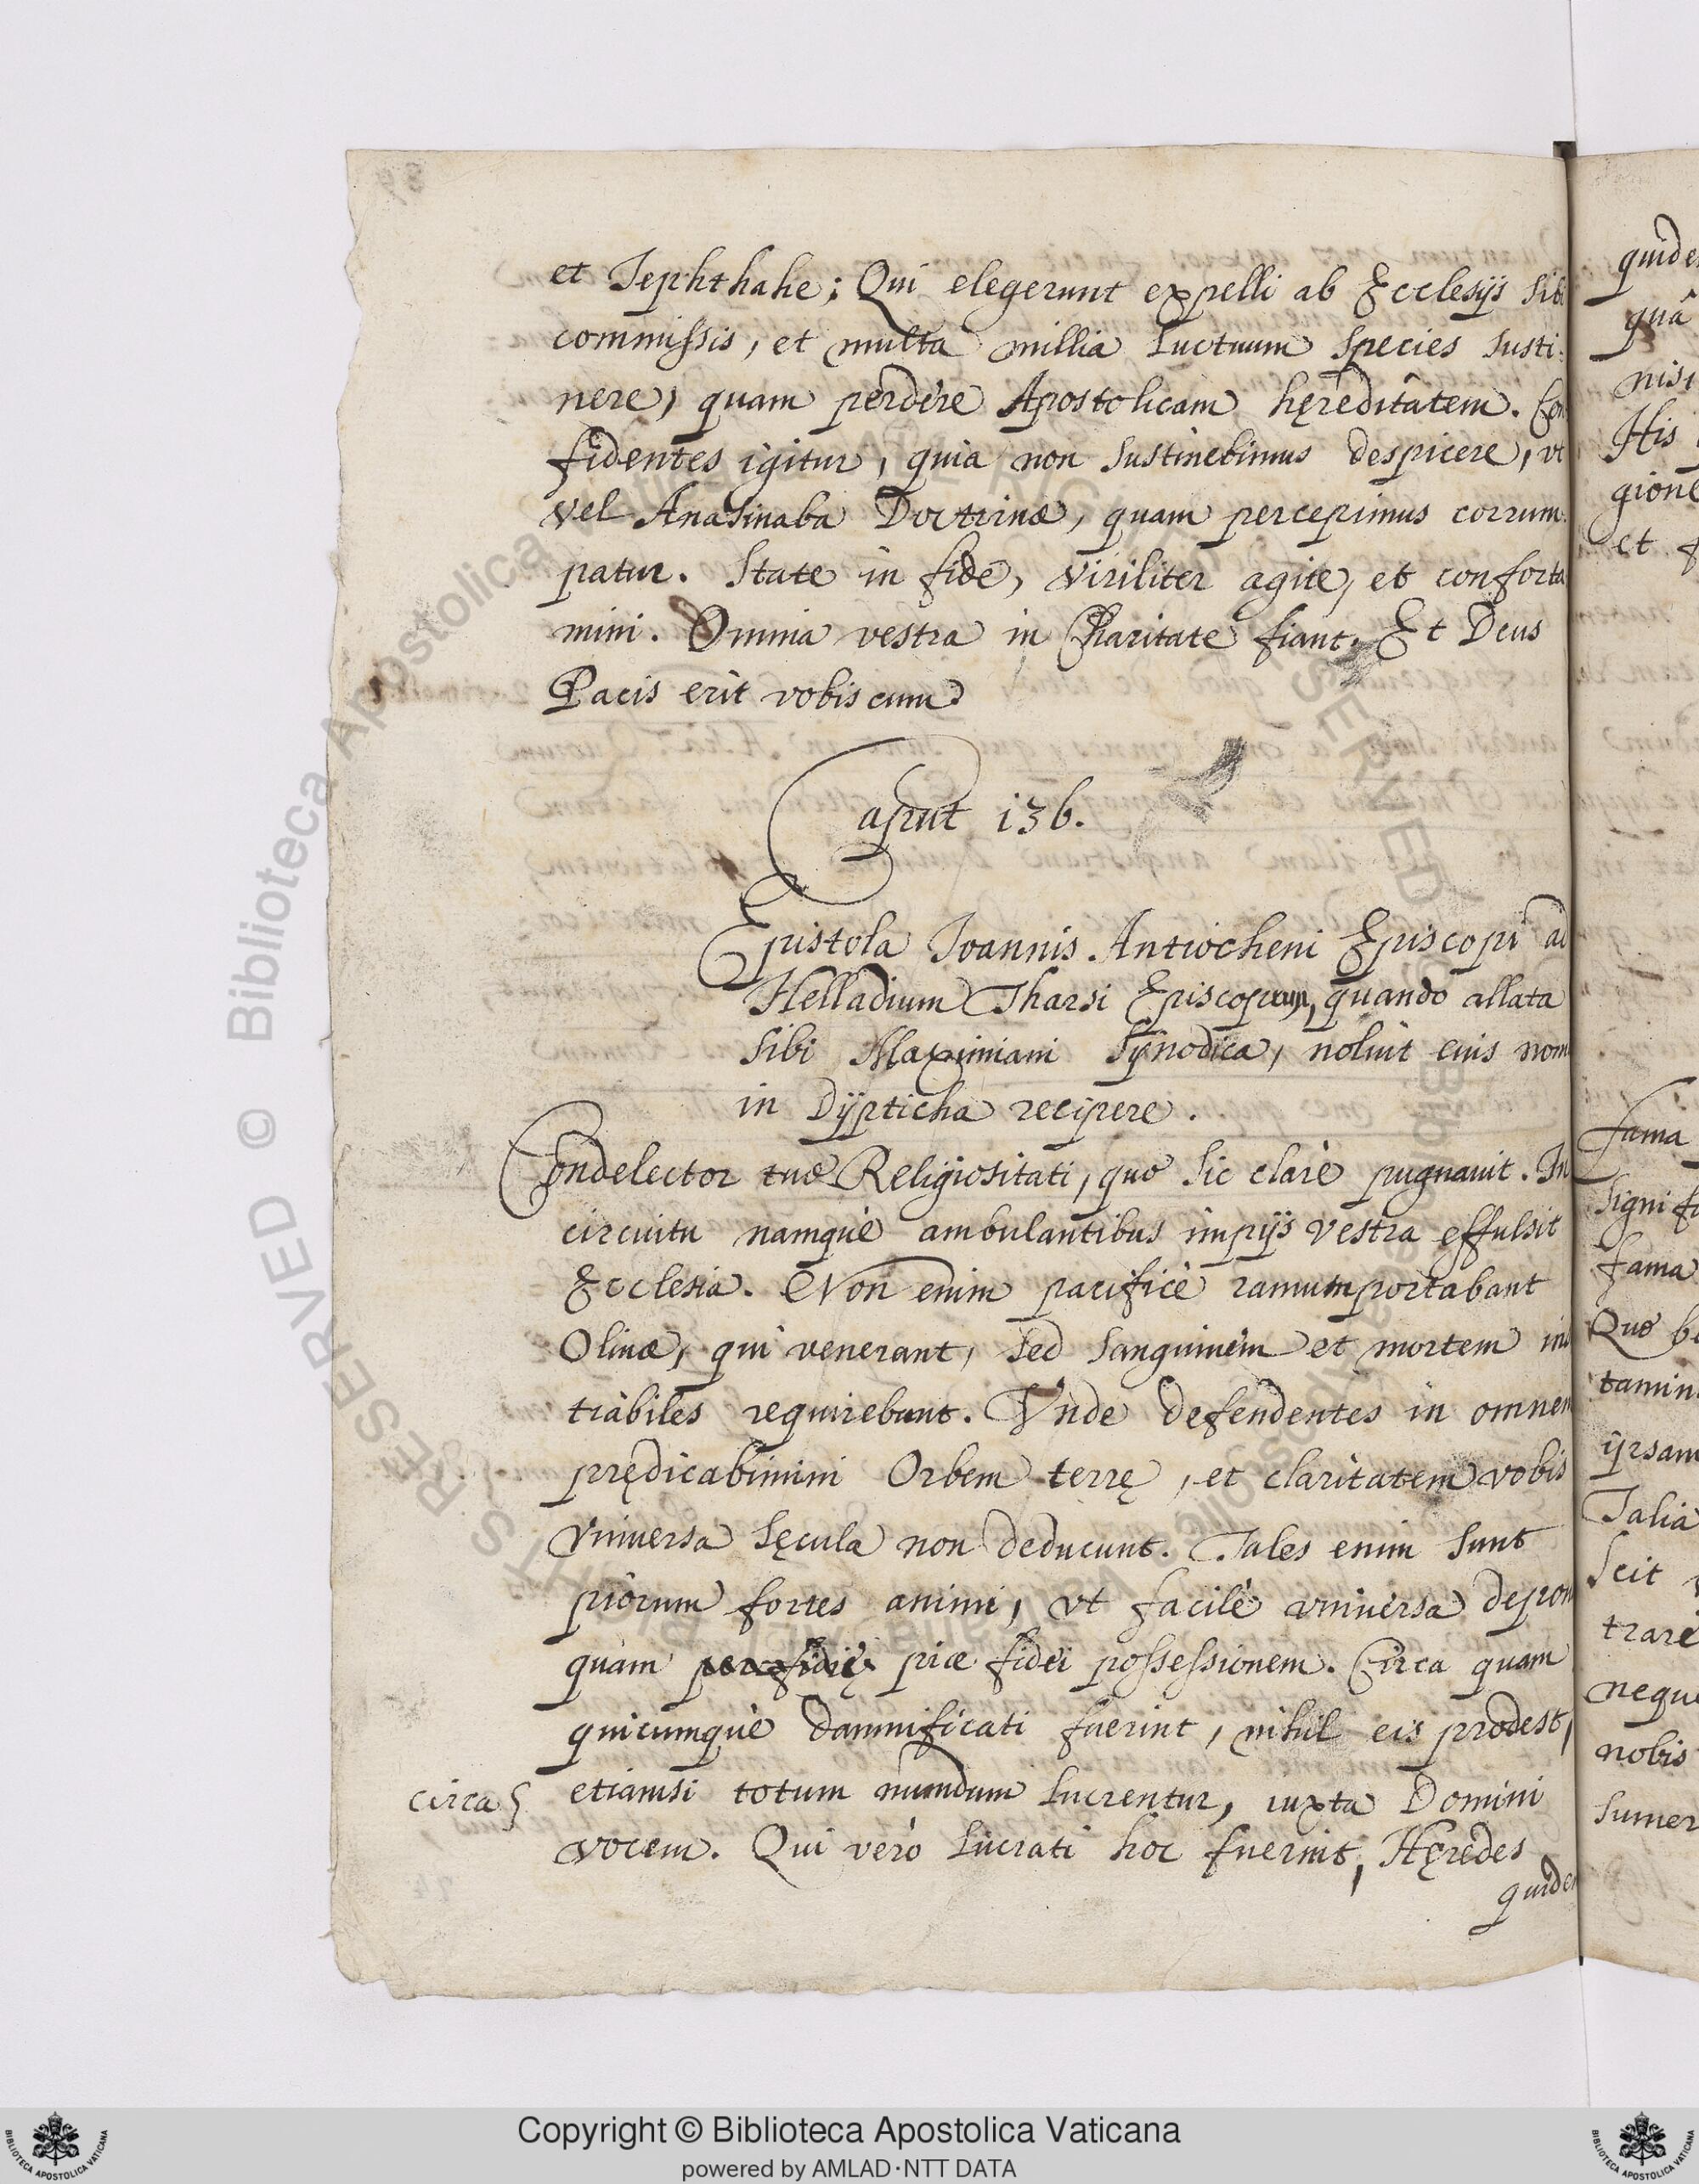 et Jephthahe; Qui elegerunt expelli ab Ecclesijs sibi
commissis, et multa millia luctuum species susti-
nere, quam perdere Apostolicam hęreditatem. Con
fidentes igitur, quia non sustinebimus despicere, vt
vel Anasinaba Doctrinæ, quam percepimus corrum-
patur. State in fide, viriliter agite, et conforta
mini. Omnia vestra in Charitate fiant. Et Deus
Pacis erit vobis cum
Caput 136.
Epistola Joannis Antiocheni Episcopi ad
Helladium Tharsi Episcopum, quando allata
sibi Maximiani Synodica, noluit eius nom
in Dÿpticha recipere.
Condelector tuæ Religiositati, quæ sic clarè pugnauit. In
circuitu namquè ambulantibus impijs vestra effulsit
Ecclesia. Non enim pacificè ramum portabant
Oliuæ, qui venerant, sed sanguinem et mortem in
trabiles requirebant. Vnde defendentes in omnem
prędicabimini Orbem terrę, et claritatem vobis
vniuersa sęcula non deducunt. Tales enim sunt
piorum fortes animi, vt facilè vniuersa depon
quàm piæ fidei possessionem. Circa quam
quicumquè damnificati fuerint, nihil eis prodest,
circa § etiamsi totum mundum lucrentur, iuxta Domini
vocem. Qui verò lucrati hoc fuerint, Hęredes
quidem
quide
quâ
nisi
His
gione
et f
fama
signi fi
fama
Quæ be
tamin
ipsam
Talia
scit
trare
nequ
nobis
sumer
© Biblioteca Apostolica Vaticana
ALL RIGHTS RESERVED
Copyright © Biblioteca Apostolica Vaticana
powered by AMLAD·NTT DATA
BIBLIOTECA APOSTOLICA VATICANA
BIBLIOTECA APOSTOLICA VATICANA